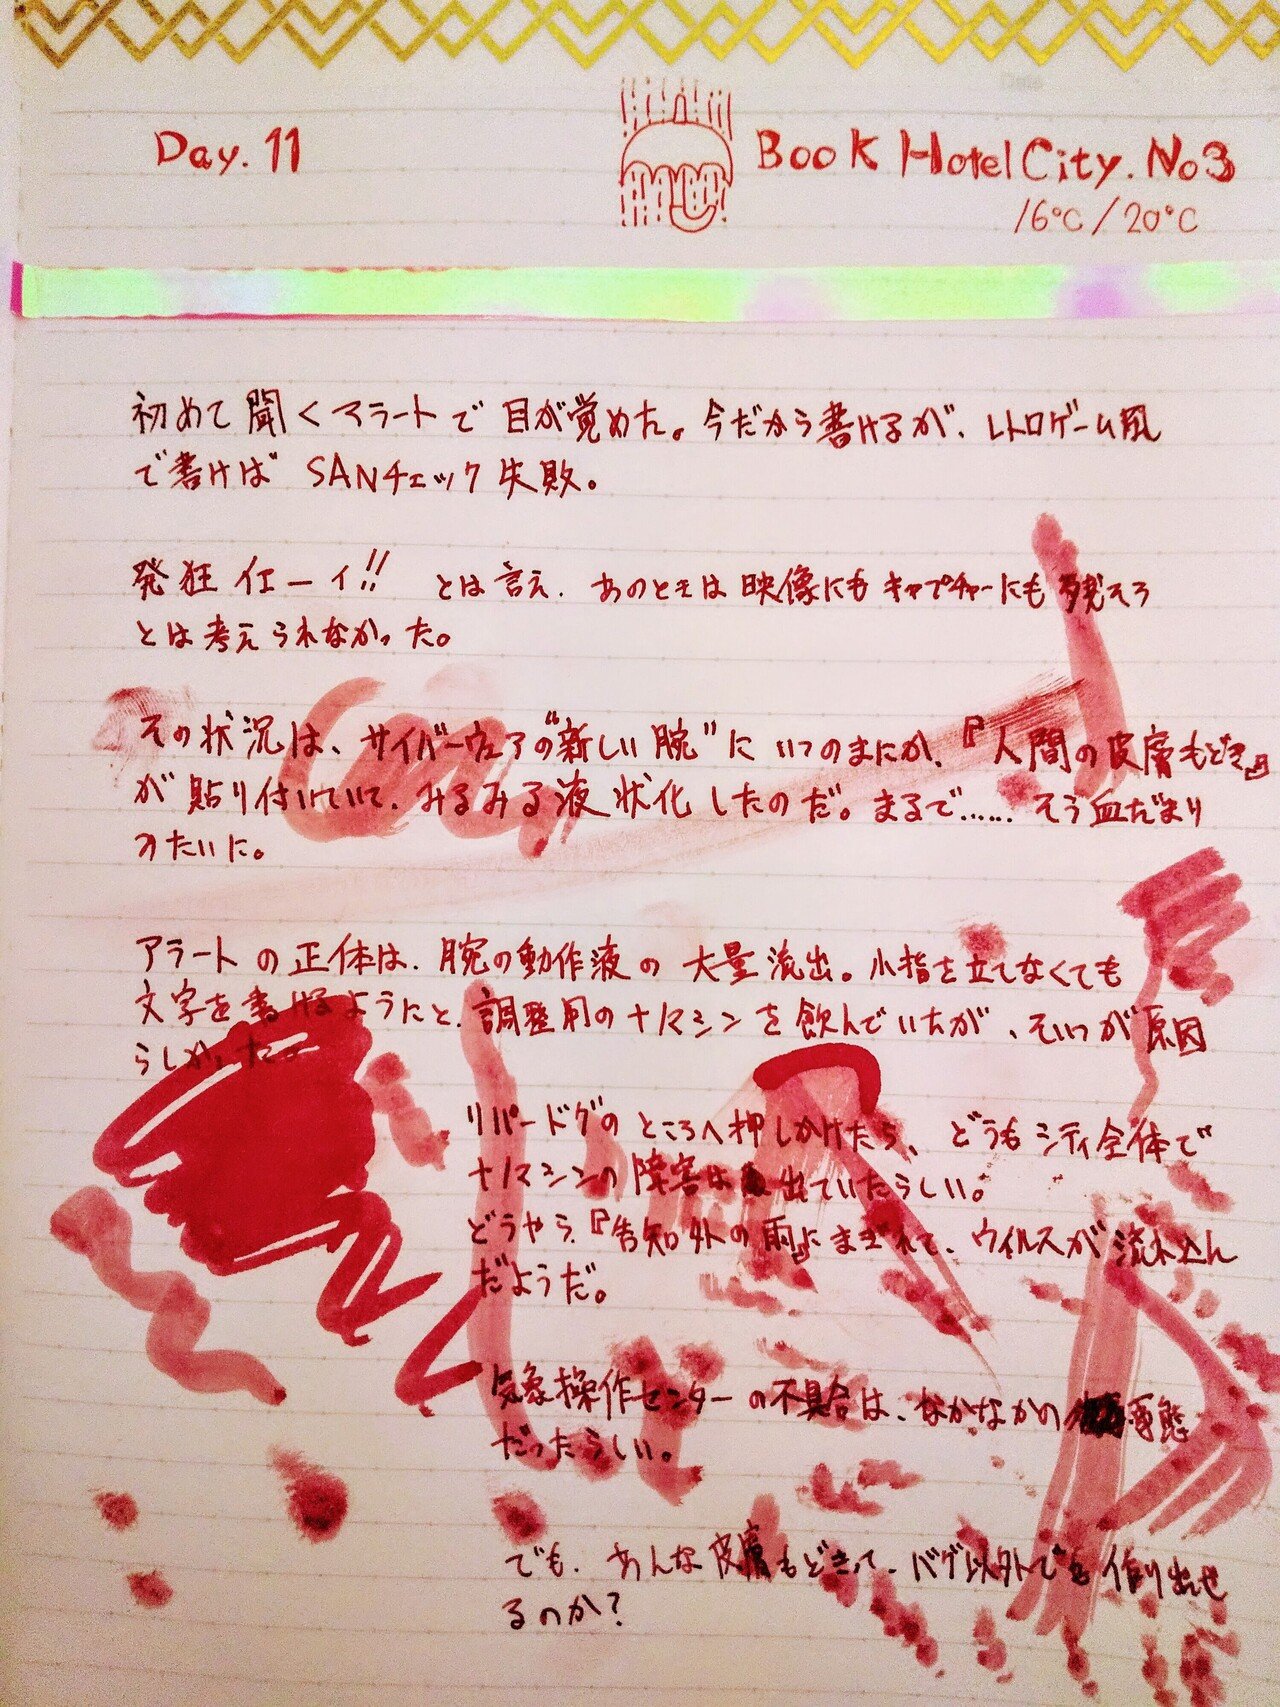 Day. 11
Book Hotel City. No3
16°C/20°C
初めて聞くアラートで目が覚めた。今だから書けるが、レトロゲーム風
で書けば SANチェック失敗。
発狂イエーイ!! とは言え、あのときは映像にもキャプチャーにも残そう
とは考えられなかった。
その状況は、サイバーウェアの“新しい腕”にいつのまにか、『人間の皮膚もどき』
が貼り付いていて、みるみる液状化したのだ。まるで……そう血だまり
みたいに。
アラートの正体は、腕の動作液の大量流出。小指を立てなくても
文字を書けるようにと、調整用のナノマシンを飲んでいたが、そいつが原因
らしかった。
リパードグのところへ押しかけたら、どうもシティ全体で
ナノマシンの障害は出ていたらしい。
どうやら『告知外の雨』にまぎれて、ウイルスが流れ込ん
だようだ。
気象操作センターの不具合は、なかなかの事態
だったらしい。
でも、あんな皮膚もどきって、バグ以外でも作り出せ
るのか?